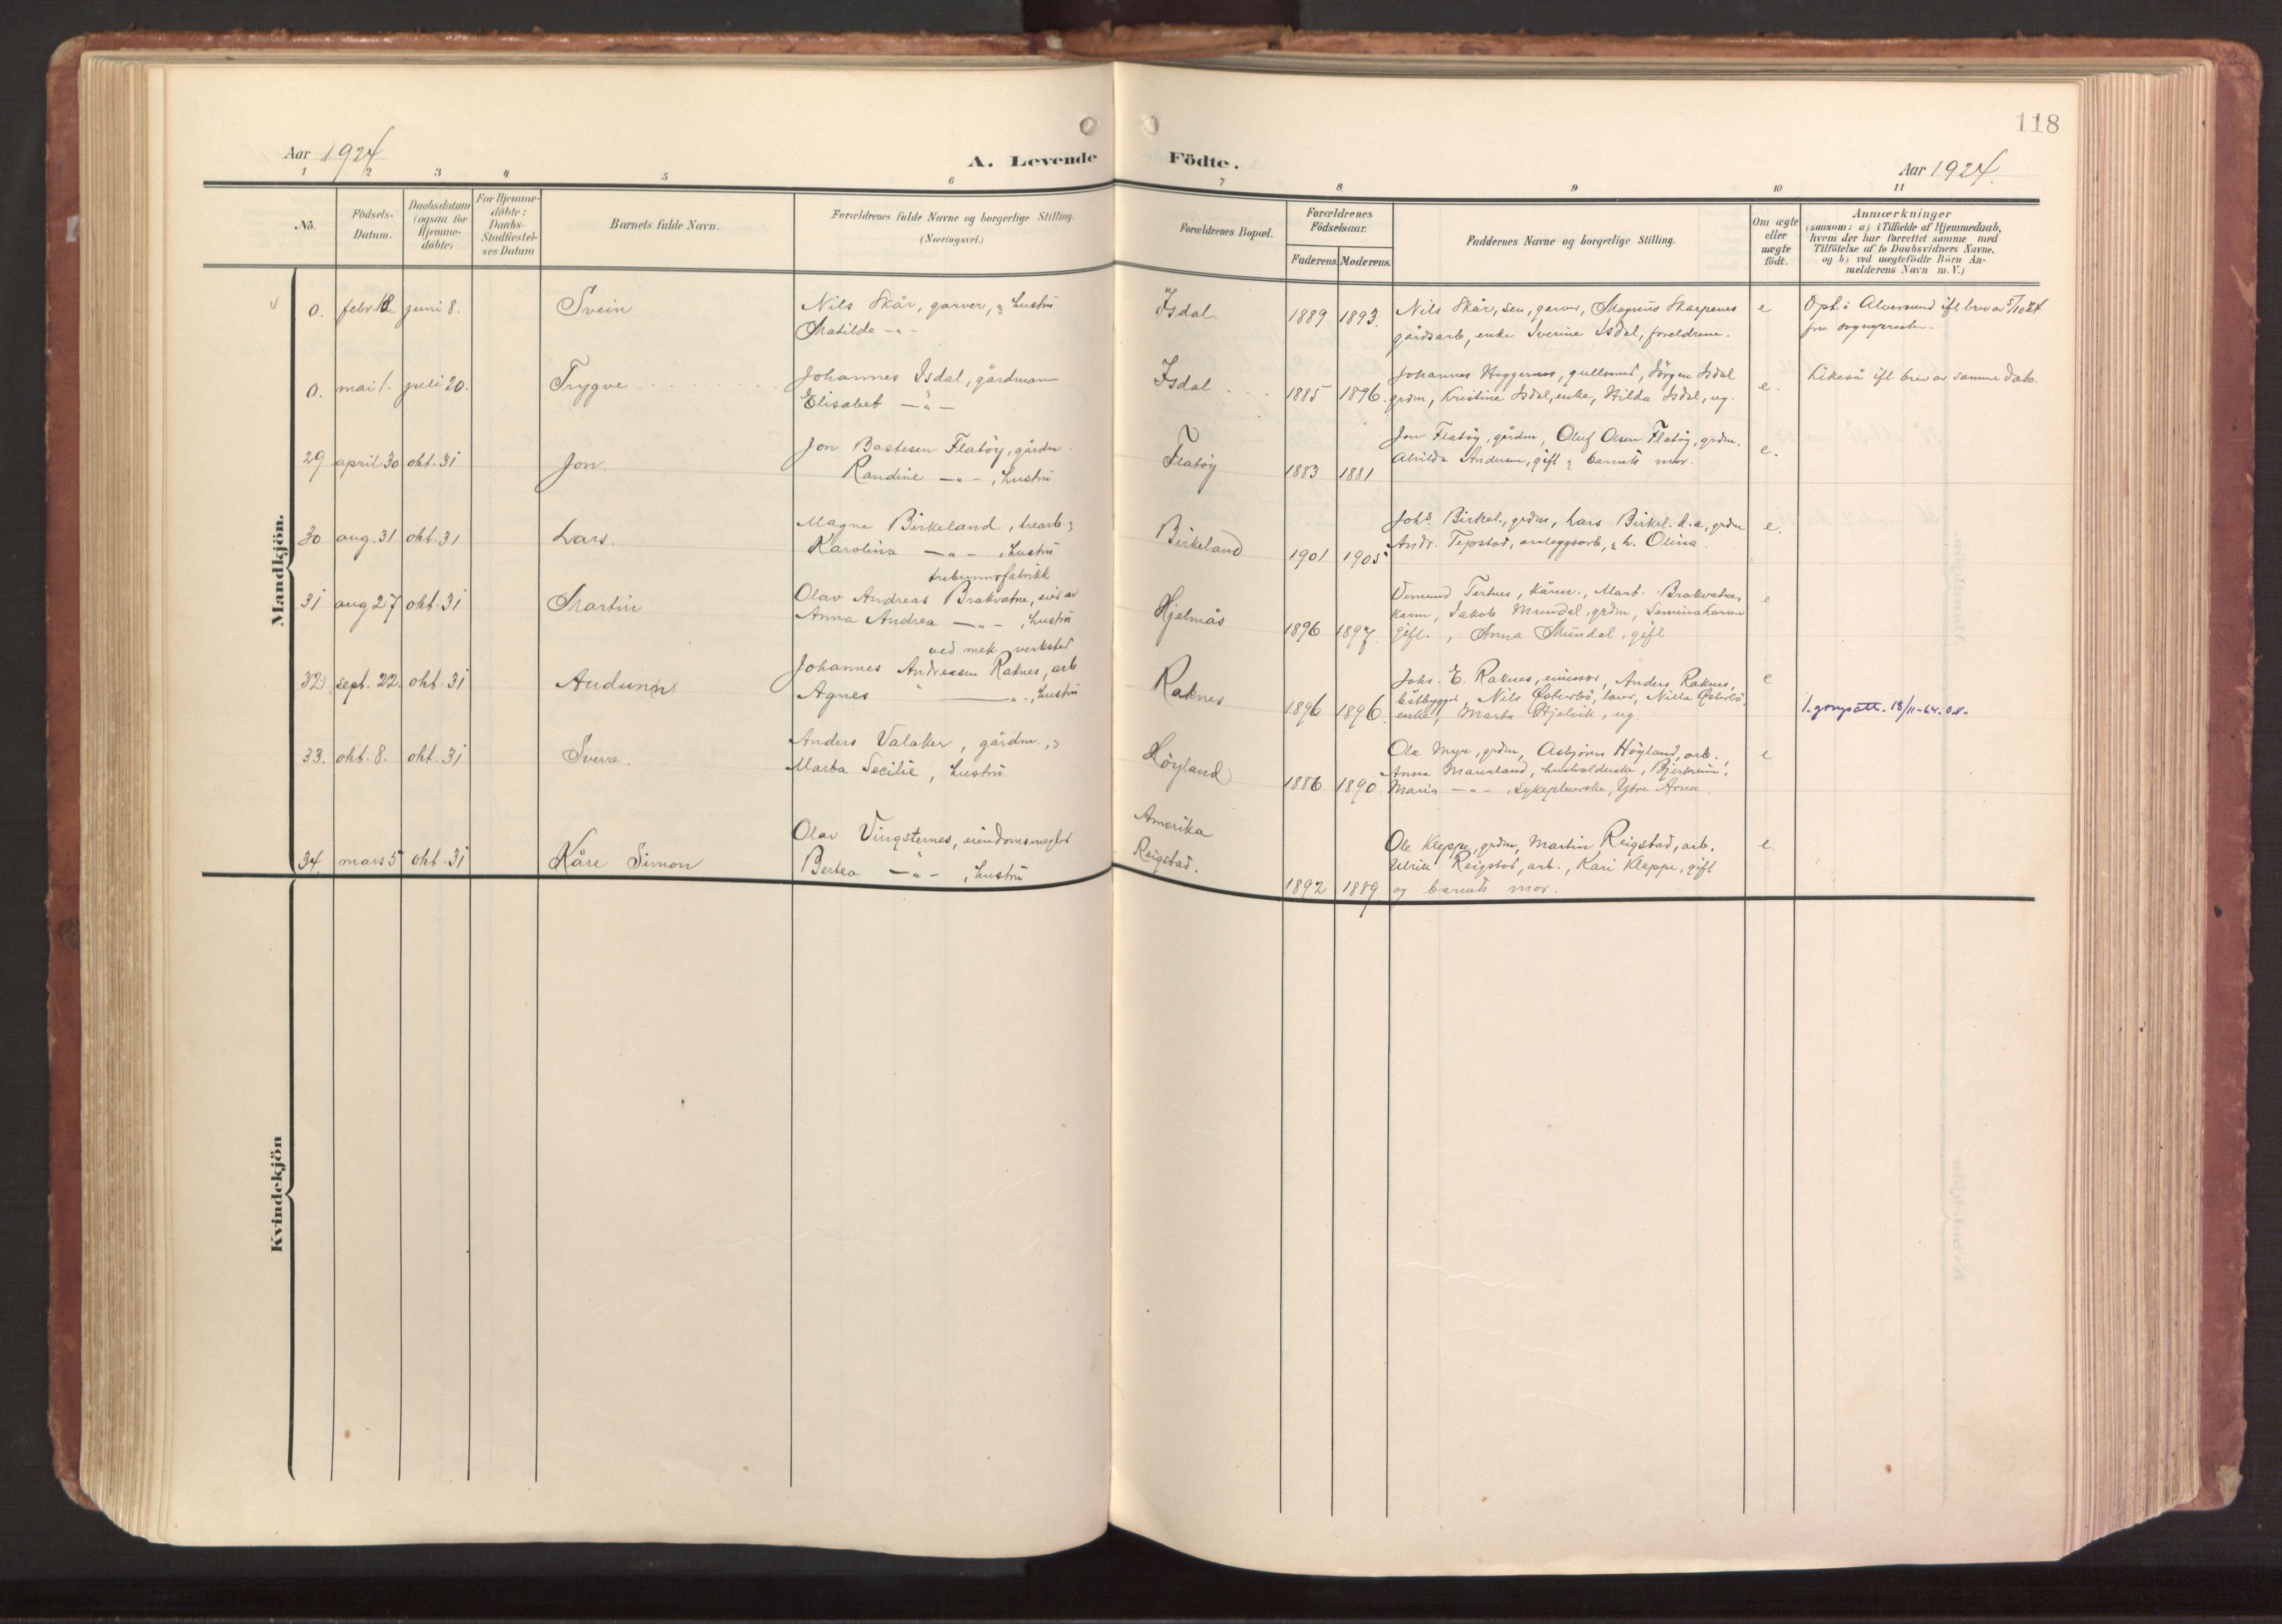 118
Aar 1924
A. Levende Födte.
Aar 1924
1 2 3 4 5 6 7 8 9 10 11
No.
Födsels-
Datum.
Daabsdatum
(ogsaa for
Hjemme-
döbte)
For Hjemme-
döbte:
Daabs-
Stadfæstel-
ses Datum
Barnets fulde Navn.
Forældrenes fulde Navne og borgerlige Stilling.
(Næringsvei.)
Forældrenes Bopæl.
Forældrenes
Födselsaar.
Faderens. Moderens.
Faddernes Navne og borgerlige Stilling.
Om ægte
eller
uægte
födt.
Anmærkninger
(saasom: a) i Tilfælde af Hjemmedaab,
hvem der har forrettet samme med
Tilföielse af to Daabsvidners Navne,
og b) ved uægtefödte Börn An-
melderens Navn m. V.)
Mandkjön.
0. febr. juni 8. Svein
Nils Skår, garver, & hustru
Matilde -"-
Isdal. 1889 1893.
Nils Skår, sen, garver, Magnus Skarpenes
gårdsarb, enke Iverine Isdal, foreldrene.
e
Opt. i Alversund ifl brev av 5/10 24
fra sognepresten.
0. mai 1. juli 20. Trygve
Johannes Isdal, gårdman
Elisabet -"-
Isdal 1885 1896.
Johannes Heggernes, gullsmed, Jörgen Isdal
grdm, Kristine Isdal, enke, Hilda Isdal, ug.
e.
Likeså ifl. brev av samme dato.
29 april 30 okt. 31 Jon.
Jon Bastesen Flatöy, gårdm.
Randine -"-, hustru
Flatöy 1883 1881
Jon Flatöy, gårdm, Oluf Olsen Flatöy, grdm.
Alvilda Andersen, gift & barnets mor.
e.
30 aug. 31 okt. 31 Lars.
Magne Birkeland, trearb. &
Karolina -"-, hustru
Birkeland 1901 1905
Johs. Birkel., grdm, Lars Birkel. d.e, grdm
Andr. Tepstad, anleggsarb, & h. Olina.
e.
31 aug 27 okt. 31 Martin
Olav Andreas Brakvatne, eier av
Anna Andrea -"-, hustru
Hjelmås 1896 1897.
Mart. Brakvatne
Jakob Mundal, grdm,
gift., Anna Mundal, gift
e
32 sept. 22. okt. 31 Audun
ved mek. verksted
Johannes Andreasen Raknes, arb
Agnes " -"-, hustru
Raknes 1896 1896.
Johs. E. Raknes, emissær, Anders Raknes,
båtbygger, Nils Østerbö, lærer, Nilla Østerbö,
enke, Marta Hjelvik, ug.
e
1. gongsatt. 18/11-64. O.S.
33. okt. 8. okt. 31 Sverre.
Anders Valaker, gårdm., &
Marta Secilie, hustru
Höyland 1886 1890
Ole Myr, grdm, Asbjörn Höyland, arb.,
Anna Maurland, husholderske, Bjerkreim,
Maria -"-, sykepleierske, Ytre Arna.
e.
34. mars 5 okt. 31 Kåre Simon
Olav Vingsternes, eiendomsmegler
Bertea -"-, hustru
Amerika
Reigstad.
1892 1889.
Ole Kleppe, grdm, Martin Reigstad, arb.
Ulrik Reigstad, arb., Kari Kleppe, gift
og barnets mor.
e.
Kvindekjön